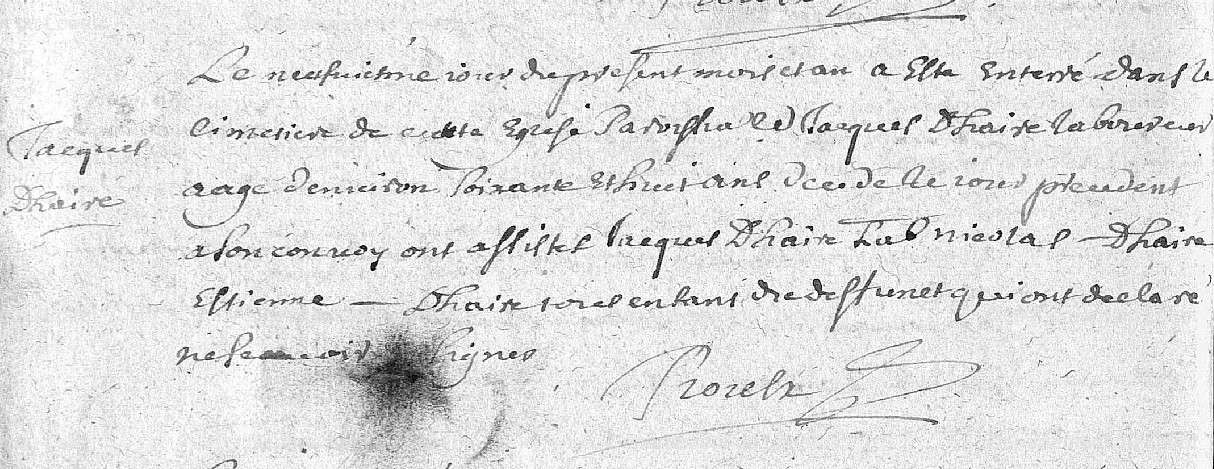 Le neufuiesme iour du present mois et an a Esté Enterré dans le
Cimetiere de cette Eglise Paroissialle Jacques Dhaire laboureur
Jacques
aagé d'enuiron soixante Et huict ans decedé le iour precedent
Dhaire
a son conuoy ont assistés Jacques Dhaire nicolas – Dhaire
Estienne – Dhaire tous enfant du deffunct qui ont declaré
ne scauoir signer